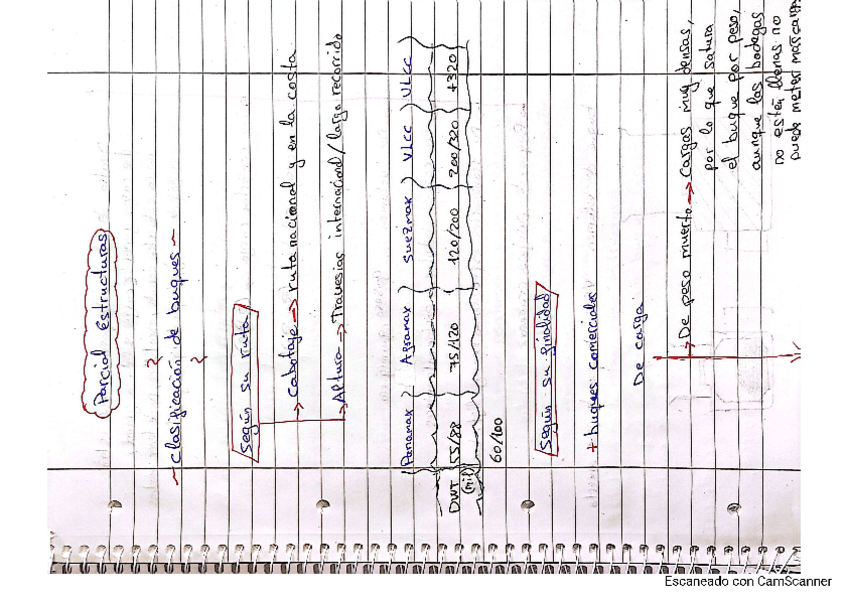 Parcial Estructuras
~ Clasificación de buques ~
Según su ruta
→ Cabotaje → ruta nacional y en la costa
→ Altura → Travesías internacional / largo recorrido
Panamax Aframax Suezmax VLCC VLCC
DWT 55/88 75/120 120/200 200/320 +320
(mil)
60/100
Según su finalidad
+ buques comerciales
De carga
→ De peso muerto → Cargas muy densas,
por lo que satura
el buque por peso,
aunque las bodegas
no estén llenas no
puede meter más carga
Escaneado con CamScanner